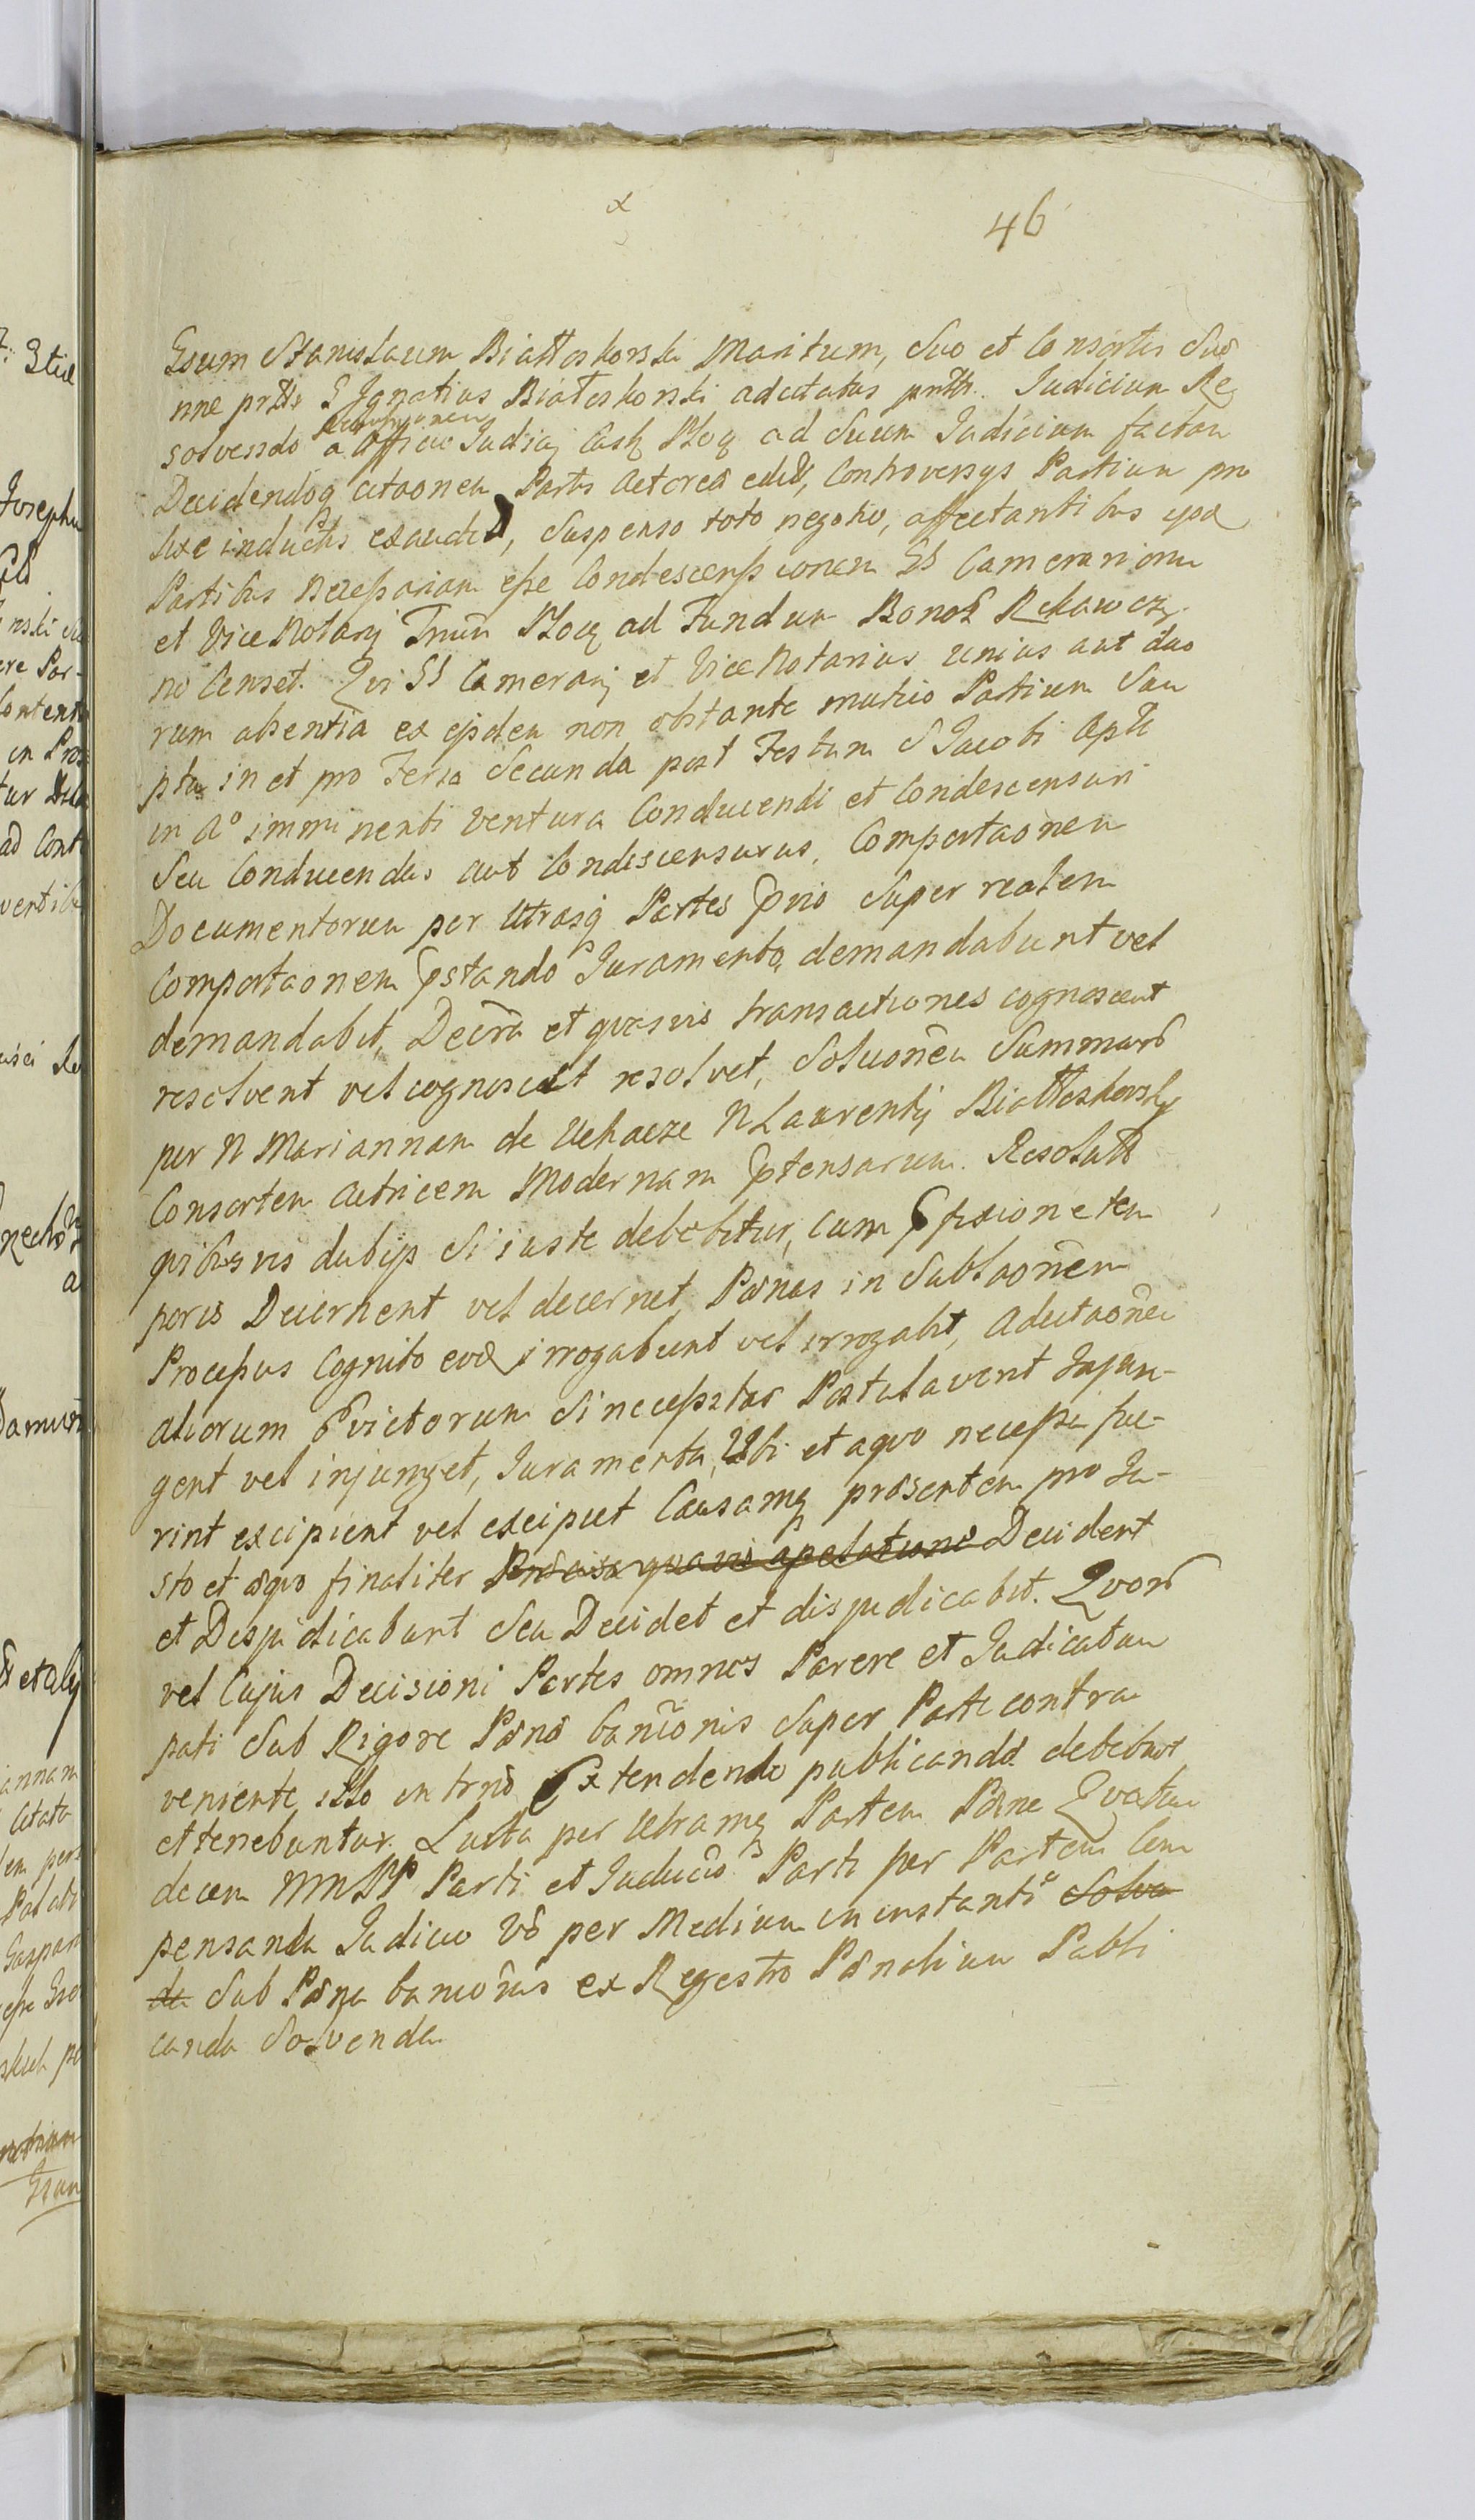 46
Gsum Stanislaum Białłoskorski Maritum, Suo et Consortis Suæ
nne prtts S Ignatius Białoskorski adcitatus prtth. Judicium Re
solvendo a Officio Judicij Castz Płoc ad Suum Judicium factam
Decidendoq citaonem Partis Actoreæ edit, Controversys Partium pro
luxe inductis exaudit, Suspenso toto negotio, affectantibus ipsæ
Partibus Necessariam esse Condescenssionem SS Camerariorum
et Vice Notarij Trnm Płoc ad Fundum Bonor Rekawcz
no Censet. Qui SS Camerarij et Vice Notarius unius aut duo
rum absentia ex ijsdem non obstante mutuo Partium Sum
ptu in et pro Feria Secunda post Festum S Jacobi Aptt
in Aº imminenti ventura Conducendi et Condescensuri
Seu Conducendus aut Condiscensurus, Comportaonem
Documentorum per Utrasq Partes prio Super realem
Comportaonem pstando Juramento, demandabunt vel
demandabit, Decrta et quasvis transactiones cognoscent
resolvent vel cognoscet resolvet, Soluonem Summarum
per N Mariannam de Uchacze N Laurentij Białłoskorsky
Consortem Actricem Modernam ptensarum. Resolutis
quibusvis dubijs Si iuste debebitur, cum pfixione tem
poris Decernent vel decernet, Pænas in Sublaonem
Processus Cognito eoq irrogabunt vel irrogabit, Adcitaonem
aliorum Evictorum Si necessitas Postulaverit Injun-
gent vel injunget, Juramenta, Ubi et a quo necesse fue-
rint excipient vel excipiet Causamq præsentem pro Ju-
sto et æquo finaliter Præcisa quavis apelatione Decident
et Disjudicabunt Seu Decidet et disjudicabit. Quorum
vel Cujus Decisioni Partes omnes Parere et Judicatum
pati Sub Rigore Pænæ banonis Super Parte contra
veniente isto in trno Extendendo publicandæ debebunt
et tenebuntur. Lucta per Utramq Partem Pæne Quatuor
decem MMPP Parti et Judicio Parti per Partem Com
pensanda Judicio Vo per Medium in instanti Solven
da Sub Pæna banonis ex Regestro Pænalium Publi
canda Solvenda